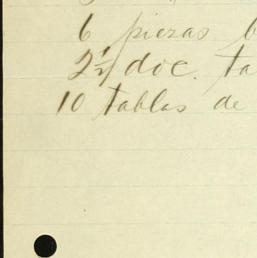 6 piezas
2½ doc. ta
10 tablas de